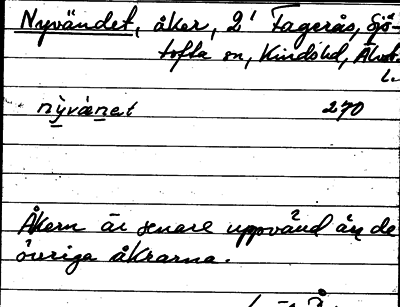 Nyvändet, åker, 2' Fagerås, Sjö-
tofta sn, Kinds hd, Älvsb.
l.
nỳvænet 270
Åkern är senare uppvänd än de
övriga åkrarna.